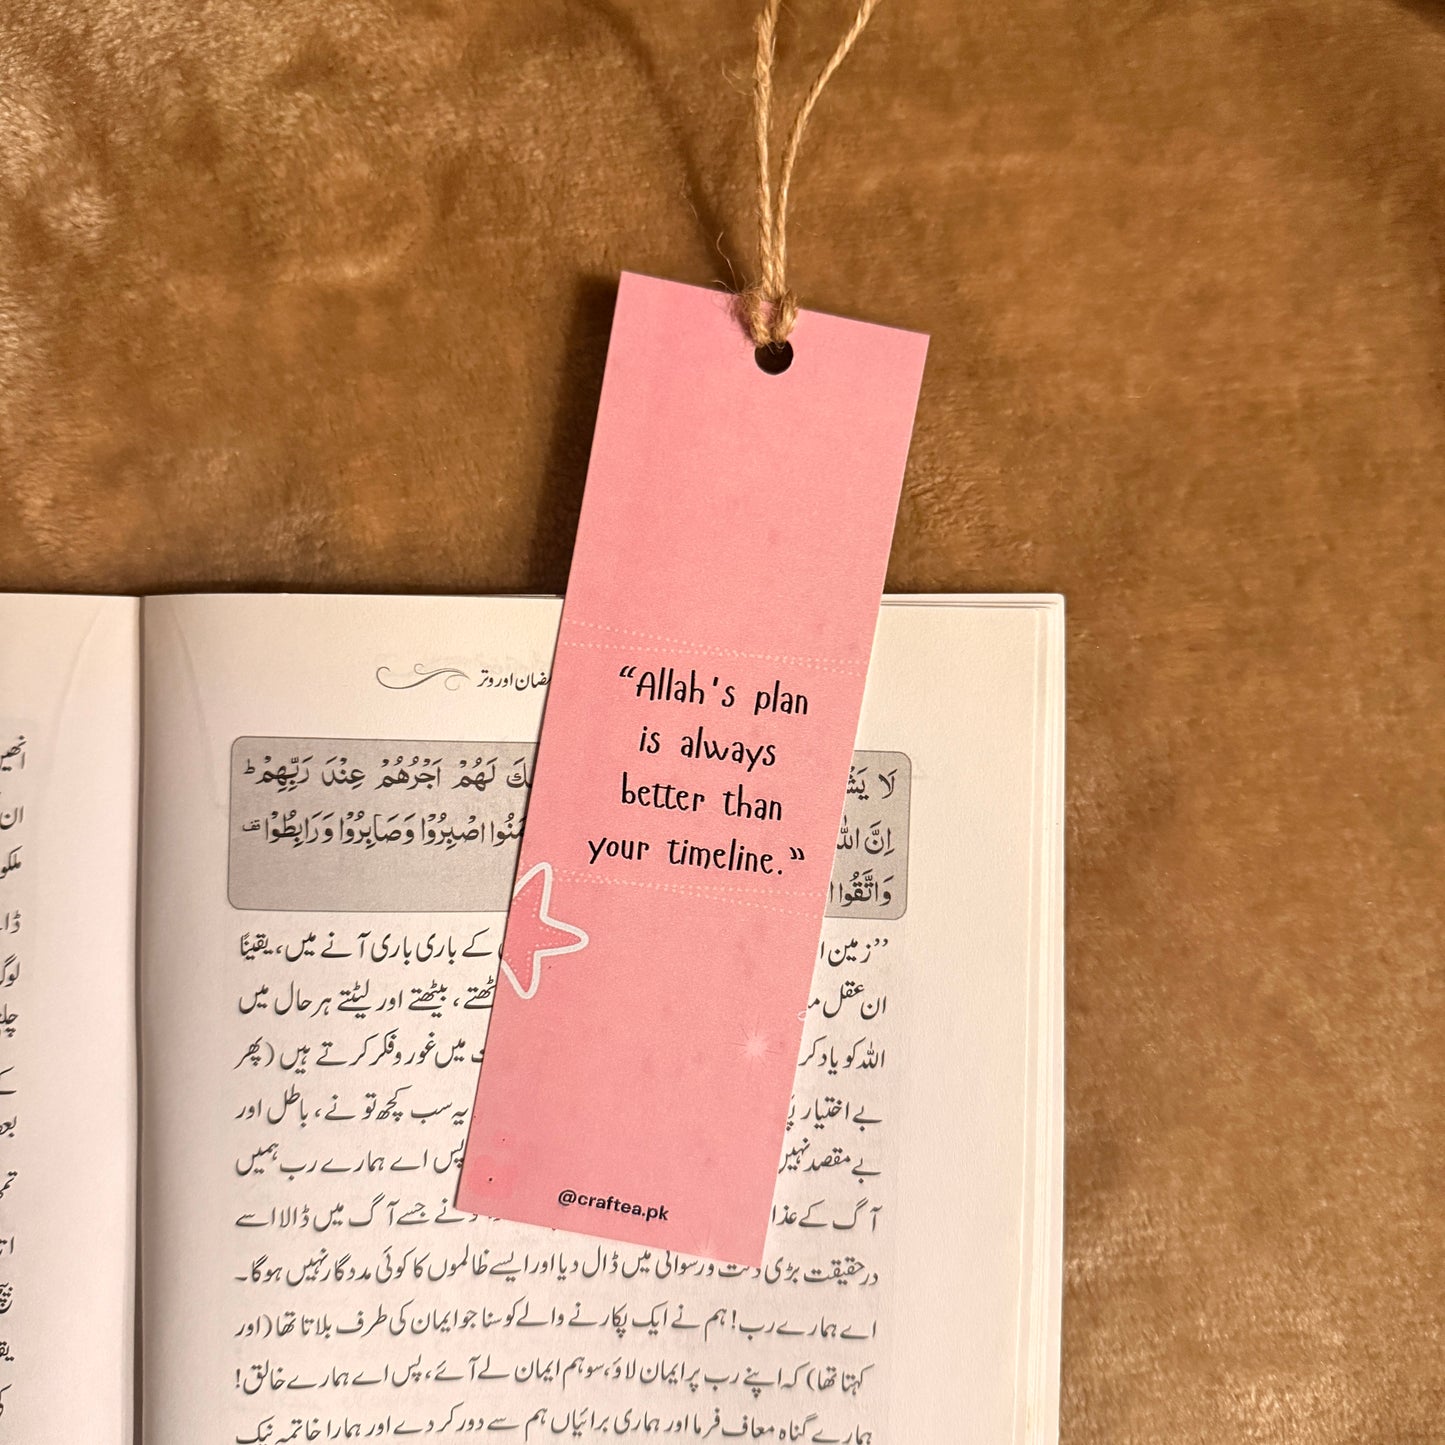 “Allah's plan
is always
better than
your timeline.”
@craftea.pk
اور وتر
لَا
لَهُمْ اَجْرُهُمْ عِنْدَ رَبِّهِمْ ؕ
اِنَّ
اصْبِرُوْا وَصَابِرُوْا وَرَابِطُوْا قف
وَاتَّقُوا
”زمین کے باری باری آنے میں، یقیناً
ان عقل بیٹھتے اور لیٹتے ہر حال میں
اللہ کو یاد کر میں غور و فکر کرتے ہیں (پھر
بے اختیار یہ سب کچھ تو نے، باطل اور
بے مقصد نہیں پس اے ہمارے رب ہمیں
آگ کے نے جسے آگ میں ڈالا اسے
درحقیقت بڑی ورسوائی میں ڈال دیا اور ایسے ظالموں کا کوئی مددگار نہیں ہوگا۔
اے ہمارے رب! ہم نے ایک پکارنے والے کو سنا جو ایمان کی طرف بلاتا تھا (اور
کہتا تھا) کہ اپنے رب پر ایمان لاؤ، سو ہم ایمان لے آئے، پس اے ہمارے خالق!
ہمارے گناہ معاف فرما اور ہماری برائیاں ہم سے دور کر دے اور ہمارا خاتمہ نیک